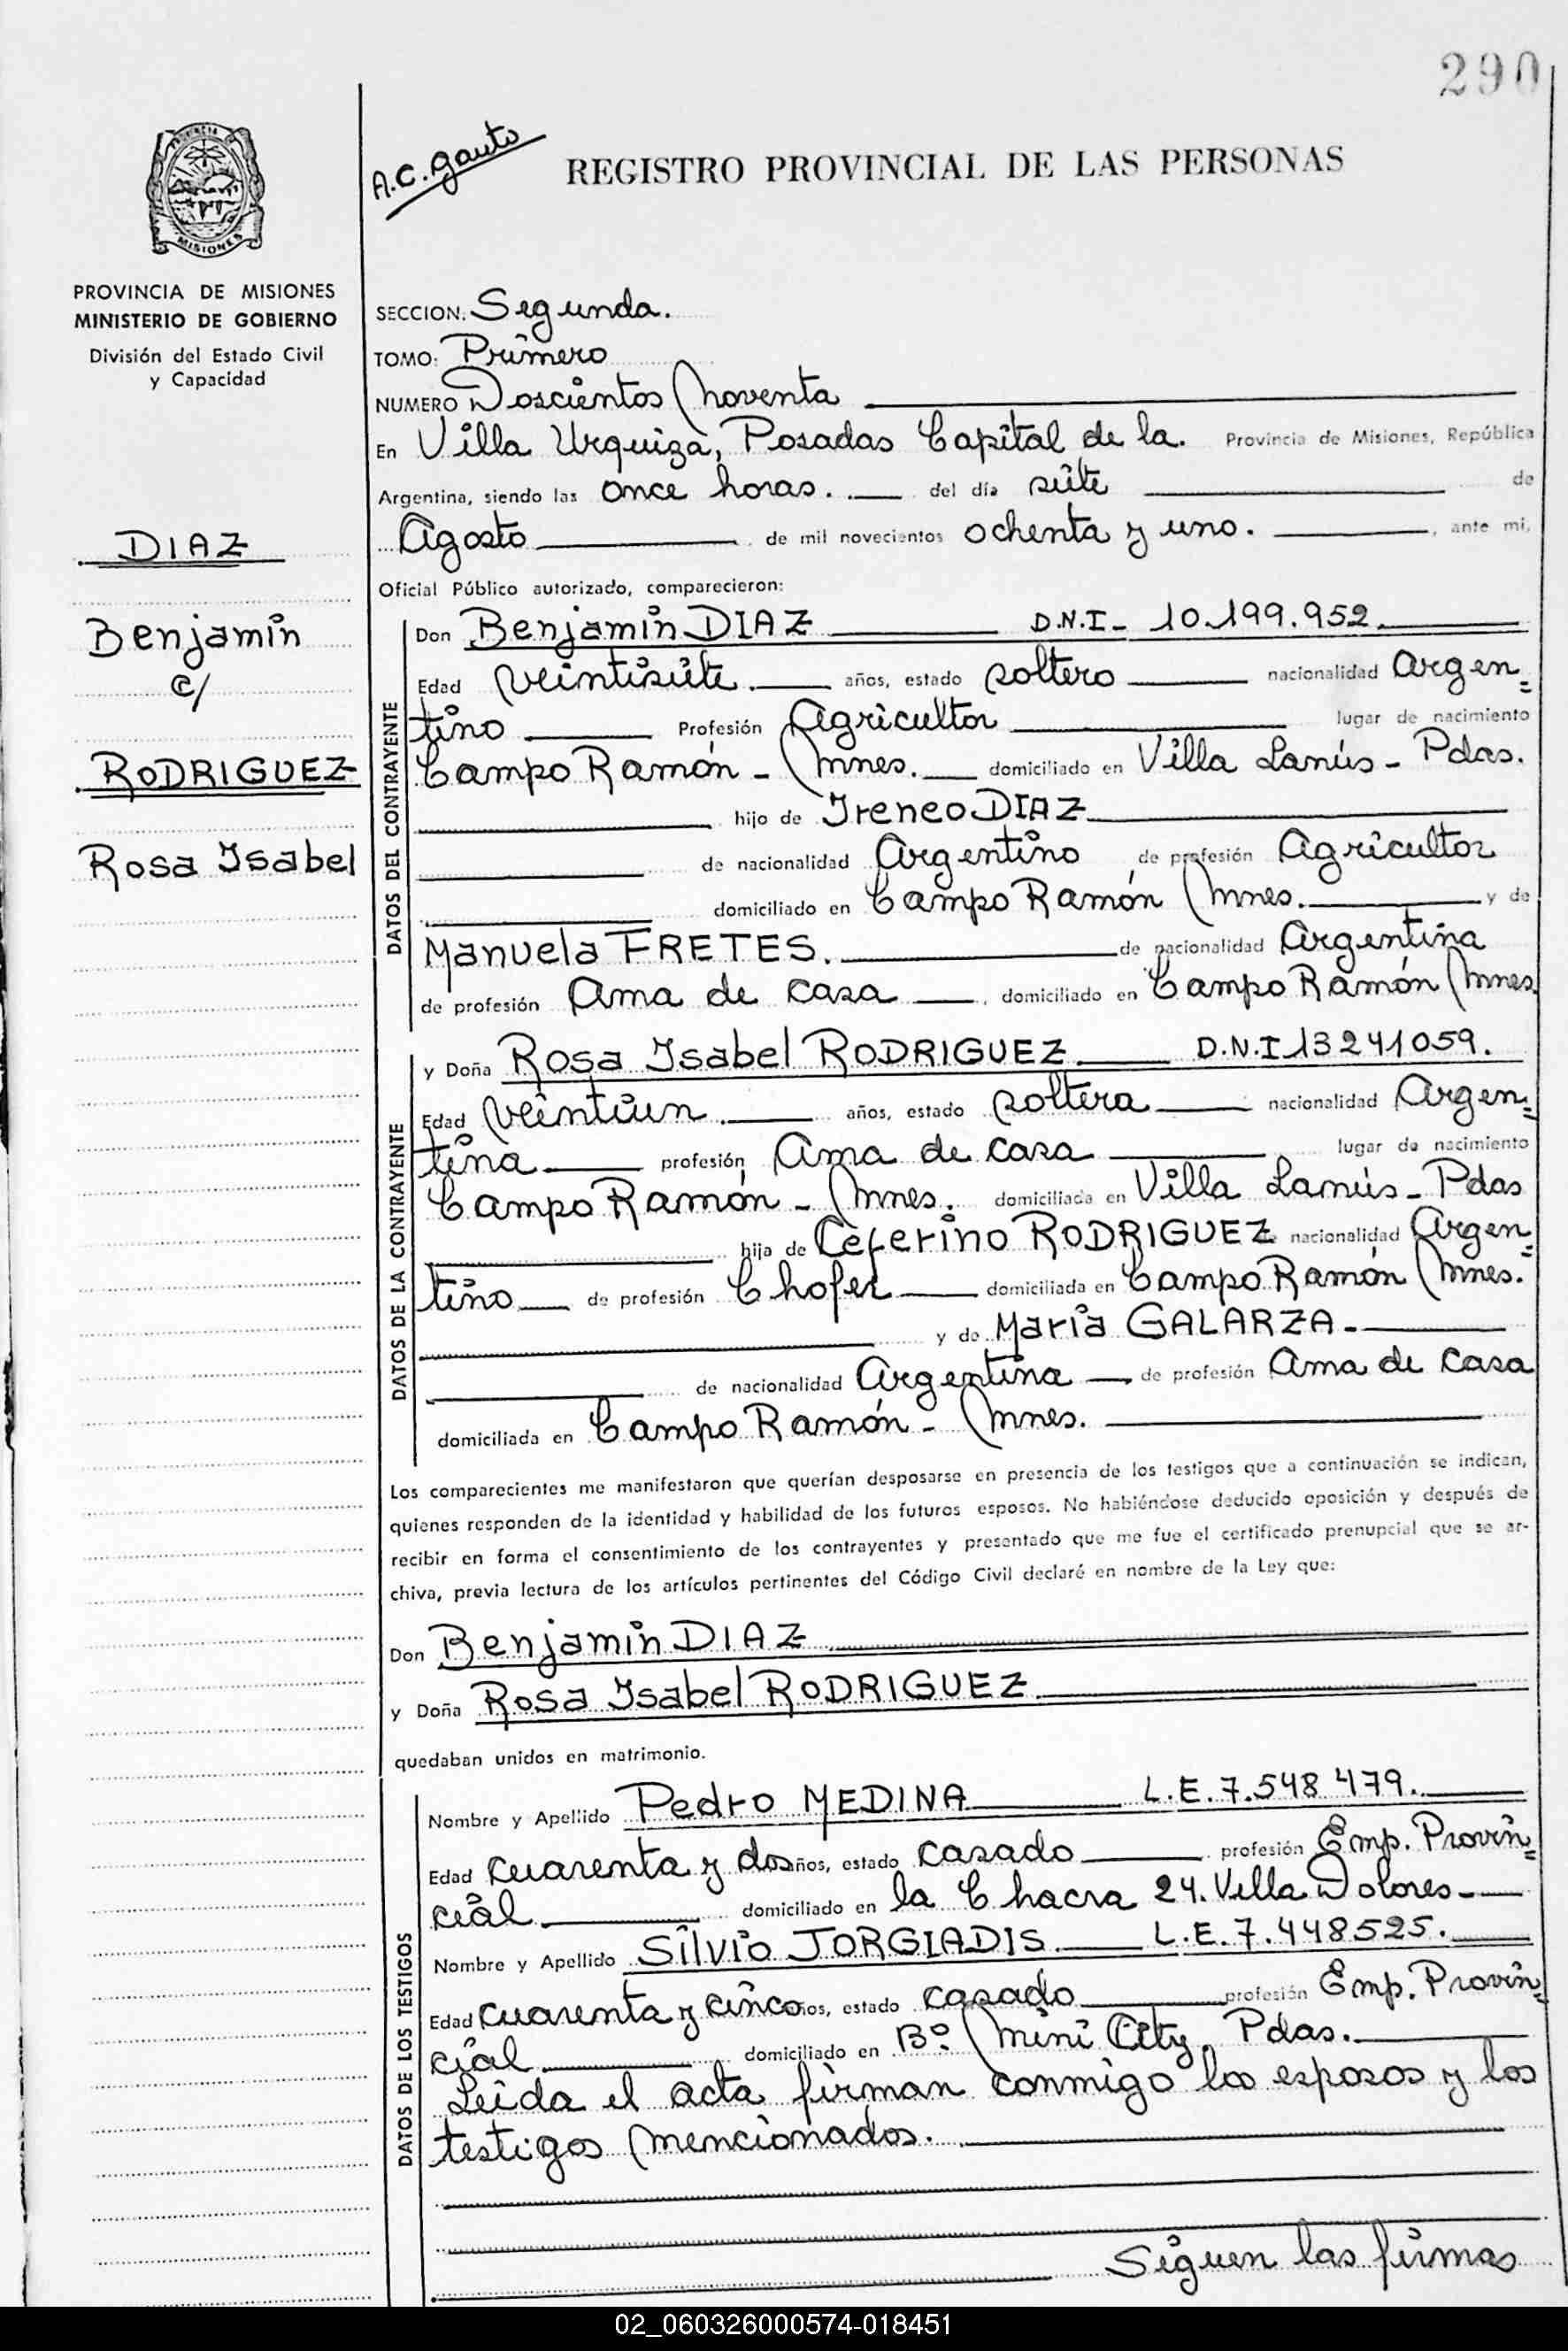 290
A.C. Gauto
REGISTRO PROVINCIAL DE LAS PERSONAS
PROVINCIA
MISIONES
PROVINCIA DE MISIONES
MINISTERIO DE GOBIERNO
División del Estado Civil
y Capacidad
DIAZ
Benjamín
c/
RODRIGUEZ
Rosa Isabel
SECCION: Segunda.
TOMO: Primero
NUMERO Doscientos Noventa
En Villa Urquiza, Posadas Capital de la. Provincia de Misiones, República
Argentina, siendo las once horas. del día siete de
Agosto de mil novecientos ochenta y uno. , ante mi,
Oficial Público autorizado, comparecieron:
DATOS DEL CONTRAYENTE
Don Benjamín DIAZ D.N.I- 10.199.952.
Edad Veintisiete. años, estado soltero nacionalidad Argen=
tino Profesión Agricultor lugar de nacimiento
Campo Ramón - Mnes. domiciliado en Villa Lanús - Pdas.
hijo de Ireneo DIAZ
de nacionalidad Argentino de profesión Agricultor
domiciliado en Campo Ramón Mnes. y de
Manuela FRETES. de nacionalidad Argentina
de profesión Ama de casa , domiciliado en Campo Ramón Mnes.
DATOS DE LA CONTRAYENTE
y Doña Rosa Isabel RODRIGUEZ D.N.I 13241059.
Edad Veintiun años, estado soltera nacionalidad Argen=
tina profesión Ama de casa lugar de nacimiento
Campo Ramón - Mnes. domiciliada en Villa Lanús - Pdas
hija de Ceferino RODRIGUEZ nacionalidad Argen=
tino de profesión Chofer domiciliada en Campo Ramón Mnes.
y de María GALARZA -
de nacionalidad Argentina de profesión Ama de casa
domiciliada en Campo Ramón - Mnes.
Los comparecientes me manifestaron que querían desposarse en presencia de los testigos que a continuación se indican,
quienes responden de la identidad y habilidad de los futuros esposos. No habiéndose deducido oposición y después de
recibir en forma el consentimiento de los contrayentes y presentado que me fue el certificado prenupcial que se ar-
chiva, previa lectura de los artículos pertinentes del Código Civil declaré en nombre de la Ley que:
Don Benjamín DIAZ
y Doña Rosa Isabel RODRIGUEZ
quedaban unidos en matrimonio.
DATOS DE LOS TESTIGOS
Nombre y Apellido Pedro MEDINA L.E. 7.548479.
Edad cuarenta y dos años, estado casado profesión Emp. Provin=
cial domiciliado en la Chacra 24. Villa Dolores -
Nombre y Apellido Silvio JORGIADIS L.E. 7.448525.
Edad cuarenta y cinco años, estado casado profesión Emp. Provin=
cial domiciliado en Bº. Mini City Pdas.
Leída el acta firman conmigo los esposos y los
testigos mencionados.
Siguen las firmas
02_060326000574-018451